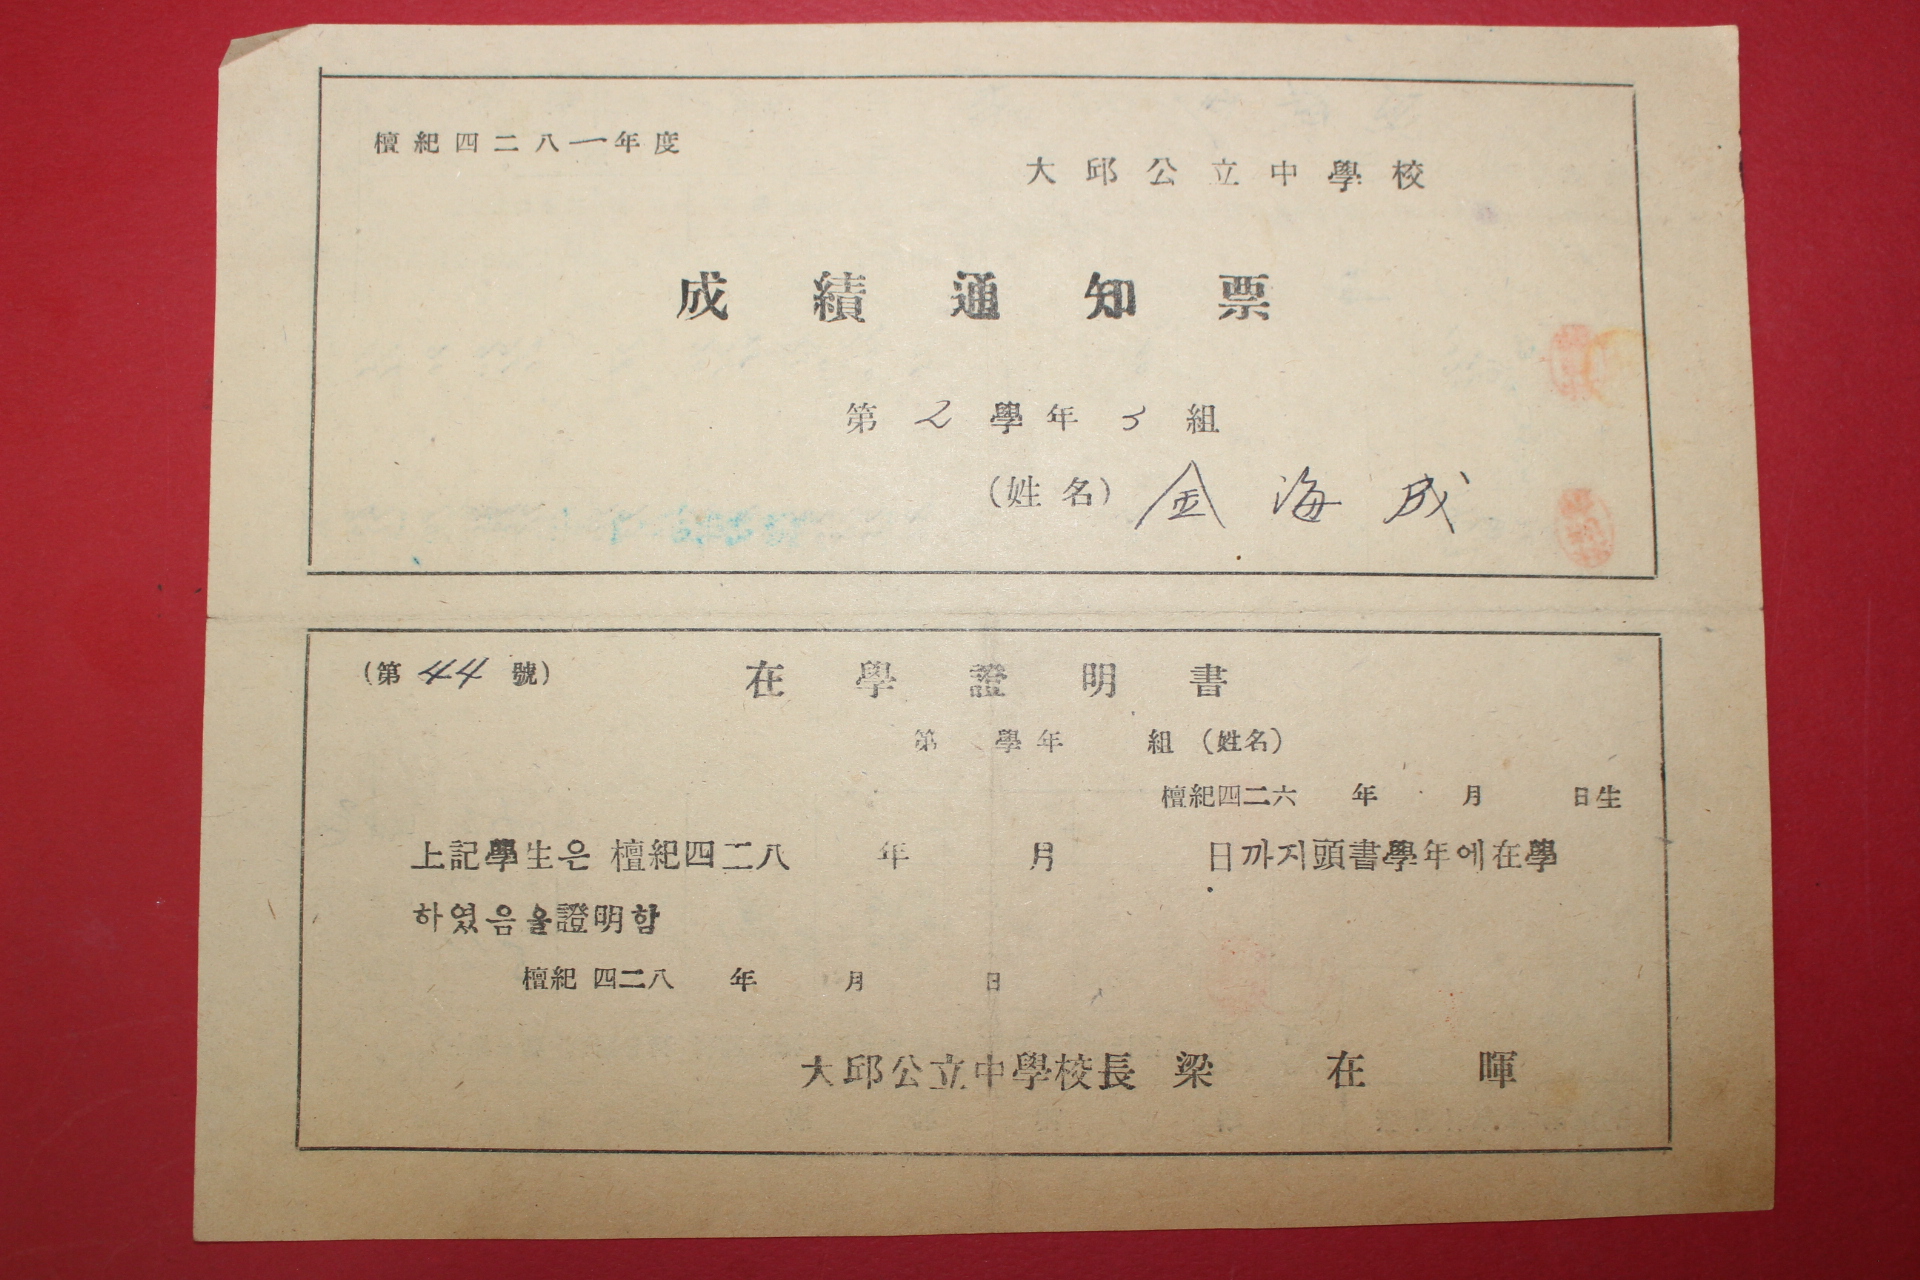 檀紀四二八一年度
大邱公立中學校
成績通知票
第2學年3組
(姓名) 金海成
(第44號) 在學證明書
第 學年 組 (姓名)
檀紀四二六 年 月 日生
上記學生은 檀紀四二八 年 月 日까지頭書學年에在學
하였음을證明함
檀紀 四二八 年 月 日
大邱公立中學校長 梁在暉